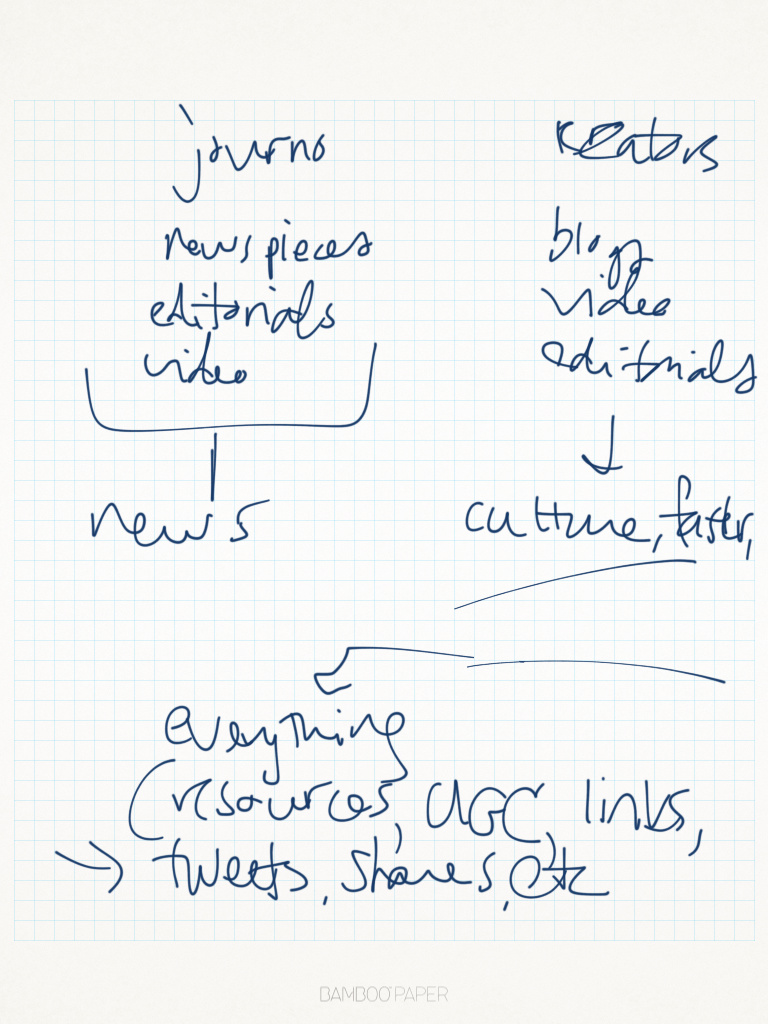 journo
creators
news pieces
editorials
video
blogs
video
editorials
news
culture, faster,
everything
(resources, UGC, links,
→ tweets, shares, etc
BAMBOO PAPER